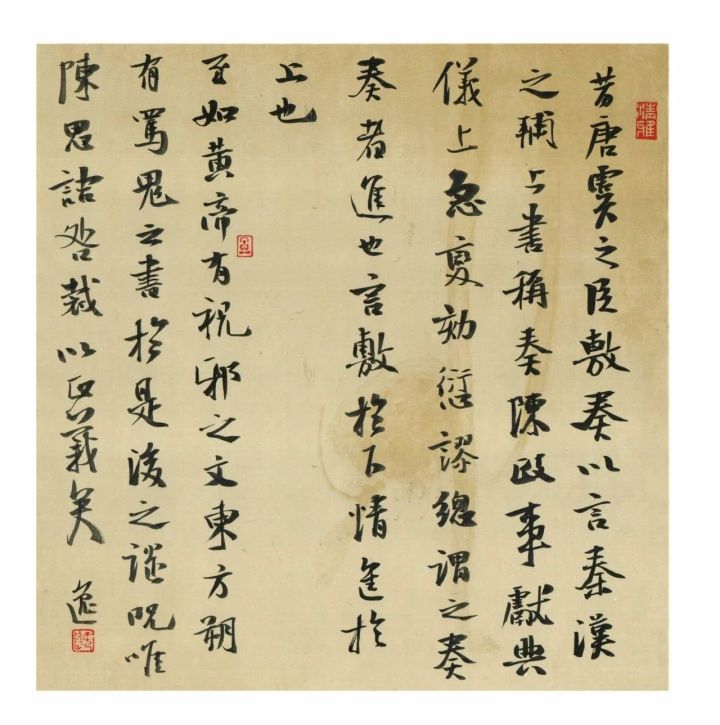 昔唐虞之臣敷奏以言秦漢
之輔上書稱奏陳政事獻典
儀上急變劾愆謬總謂之奏
奏者進也言敷於下情進於
上也
至如黃帝有祝邪之文東方朔
有罵鬼之書於是後之譴呪唯
陳思詰咎裁以正義矣 逸